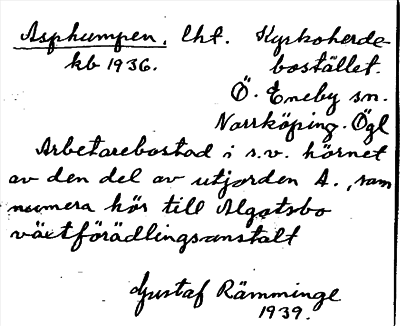 Asphumpen. Lht. Kyrkoherde-
kb 1936. bostället.
Ö. Eneby sn.
Norrköping. Ögl
Arbetarebostad i s.v. hörnet
av den del av utjorden A., som
numera hör till Algotsbo
växtförädlingsanstalt
Gustaf Rämminge
1939.